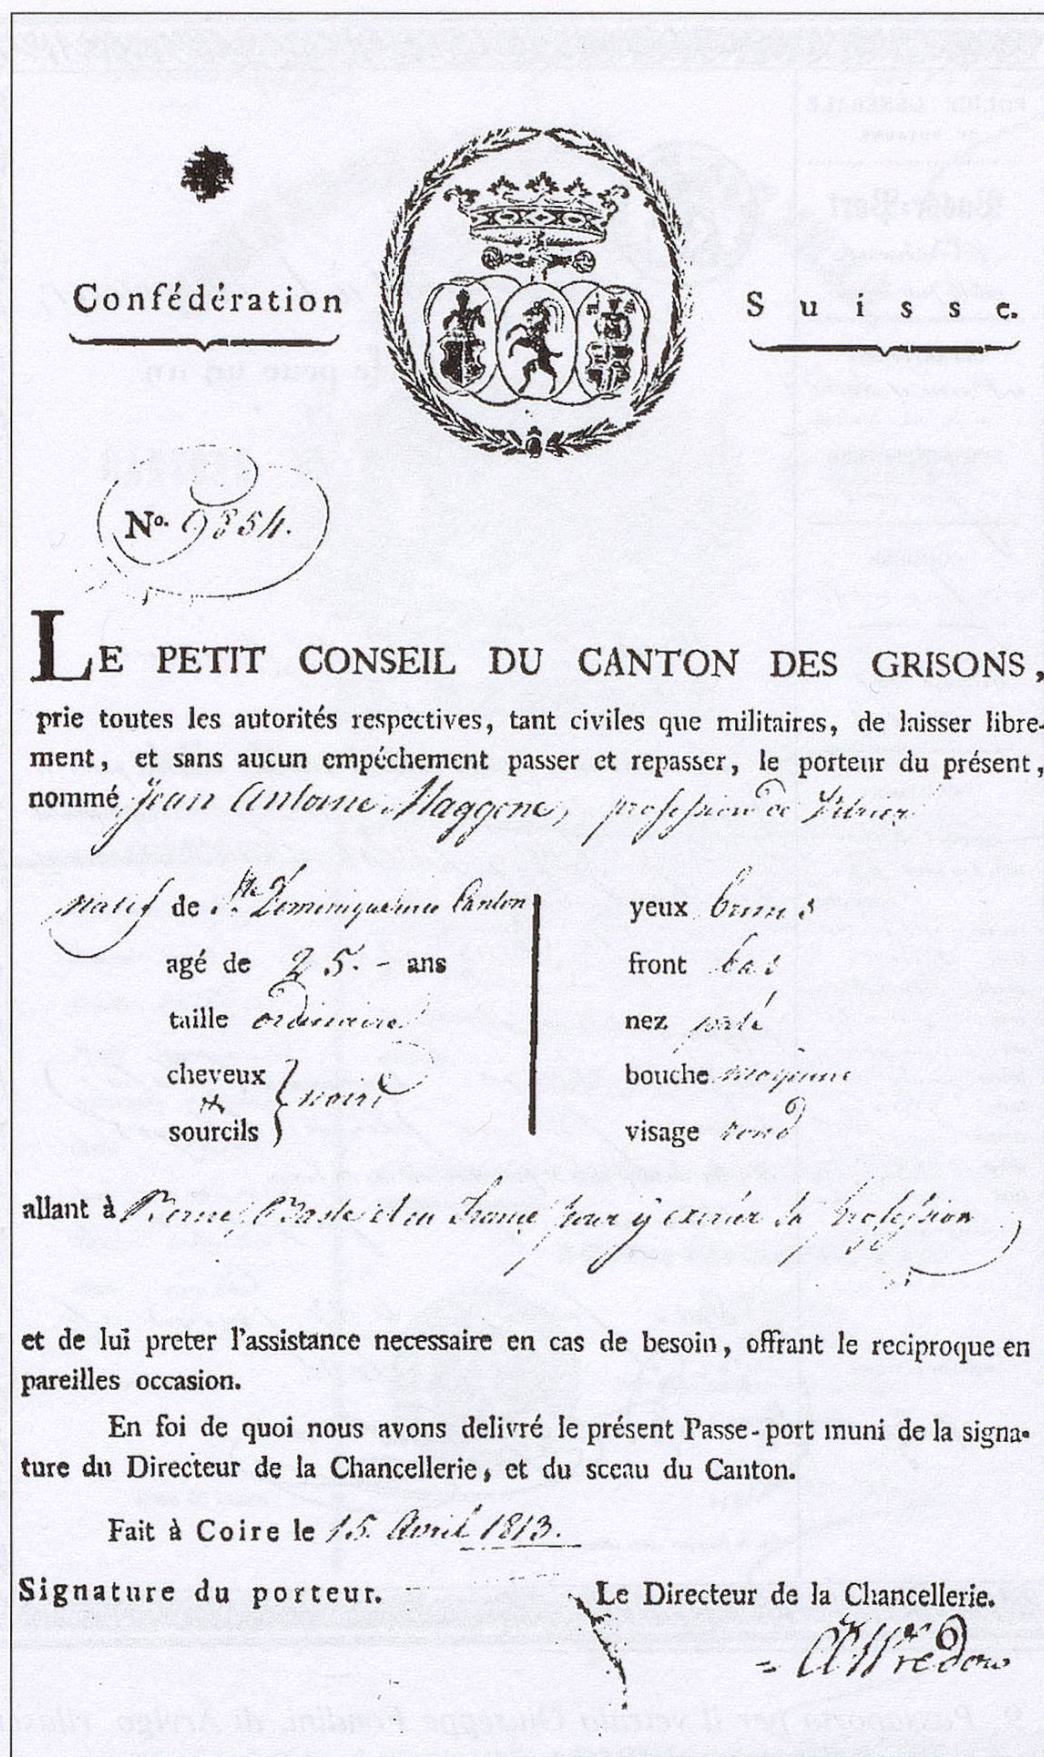 Confédération Suisse.
No. 9854.
LE PETIT CONSEIL DU CANTON DES GRISONS,
prie toutes les autorités respectives, tant civiles que militaires, de laisser libre-
ment, et sans aucun empéchement passer et repasser, le porteur du présent,
nommé Jean Antoine Maggene, profession de Vitrier
natif de Ste. Dominique Canton
agé de 25.- ans
taille ordinaire
cheveux & sourcils } noirs
yeux bruns
front bas
nez
bouche moyenne
visage rond
allant à Berne, Basle et en France pour y exercer sa profession
et de lui preter l'assistance necessaire en cas de besoin, offrant le reciproque en
pareilles occasion.
En foi de quoi nous avons delivré le présent Passe-port muni de la signa-
ture du Directeur de la Chancellerie, et du sceau du Canton.
Fait à Coire le 15. Avril 1813.
Signature du porteur. Le Directeur de la Chancellerie.